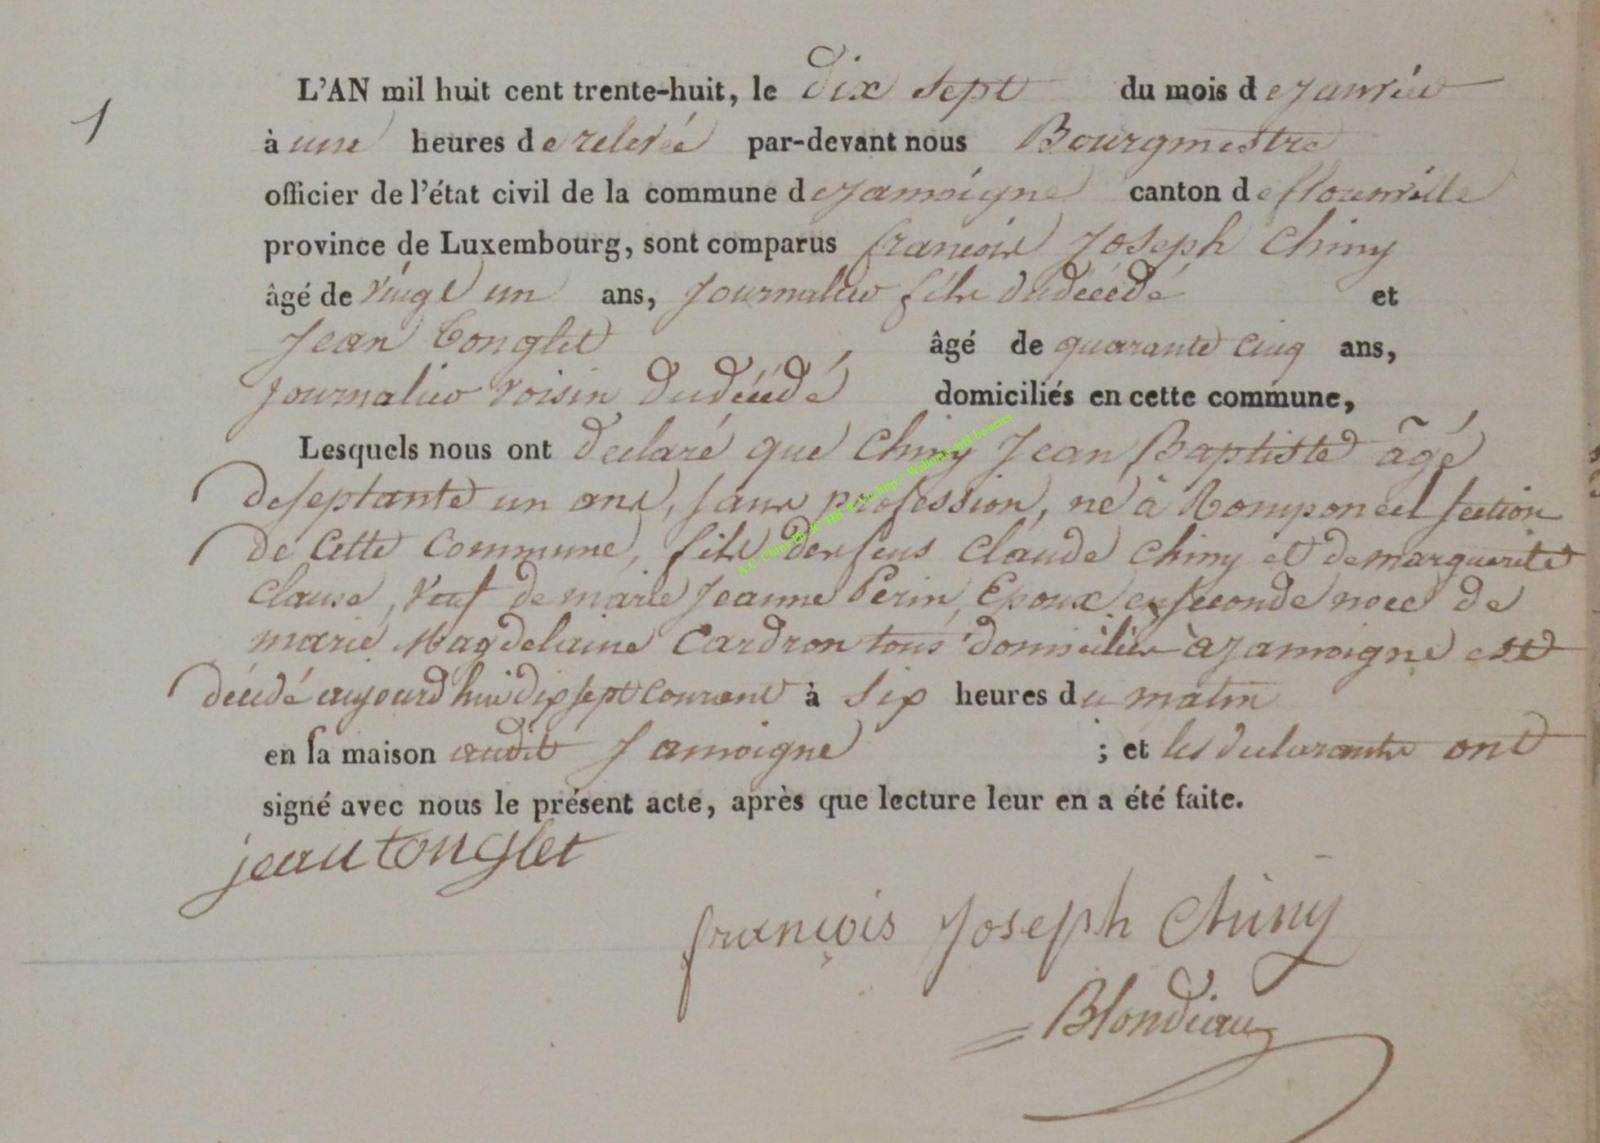 1
L'AN mil huit cent trente-huit, le dix sept du mois de janvier
à une heures de relevée par-devant nous Bourgmestre
officier de l'état civil de la commune de jamoigne canton de florenville
province de Luxembourg, sont comparus francois Joseph Chiny
âgé de vingt un ans, Journalier fils du décédé et
Jean Tonglet âgé de quarante cinq ans,
Journalier voisin du décédé domiciliés en cette commune,
Lesquels nous ont déclaré que Chiny Jean Baptiste âgé
de septante un ans, sans profession, né à section
de Cette Commune, fils des feus Claude Chiny et de marguerite
Clause, veuf de marie Jeanne Perin, Epoux en seconde noce de
marie Magdelaine Cardron tous domiciliés à jamoigne est
décédé aujourd'hui dix sept courant à six heures du matin
en sa maison audit Jamoigne ; et les déclarants ont
signé avec nous le présent acte, après que lecture leur en a été faite.
jean tonglet
françois Joseph Chiny
Blondiau